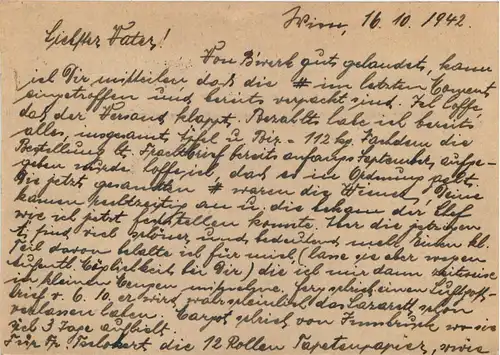 Wien, 16.10.1942.
Liebster Vater!
Von B'werk gut gelandet, kann
ich Dir mitteilen daß die # im letzten Moment
eingetroffen und bereits verpackt sind. Ich hoffe,
daß der Versand klappt. Bezahlt habe ich bereits
alles, insgesamt Äpfel u. Bir. = 112 kg. Nachdem die
Bestellung lt. Frachtbrief bereits anfangs September, aufge-
geben wurde, hoffe ich, daß es in Ordnung geht.
Die jetzt gesandten # waren die Wiener, Deine
kamen rechtzeitig an u. die haben der Chef
wie ich jetzt feststellen konnte. Nur die jetzigen
# sind viel schöner und bedeutend mehr. Einen kl.
Teil davon behalte ich für mich, (lasse sie aber wegen
Möglichkeit bei Dir) die ich mir dann zeitweise
in kleinen Mengen mitnehme. schrieb einen Luftpost-
brief v. 6.10. er wird wahrscheinlich das Lazarett schon
verlassen haben. Margot schrieb von Innsbruck wo sie
sich 3 Tage aufhielt.
Für Fr. die 12 Rollen Tapetenpapier, wie